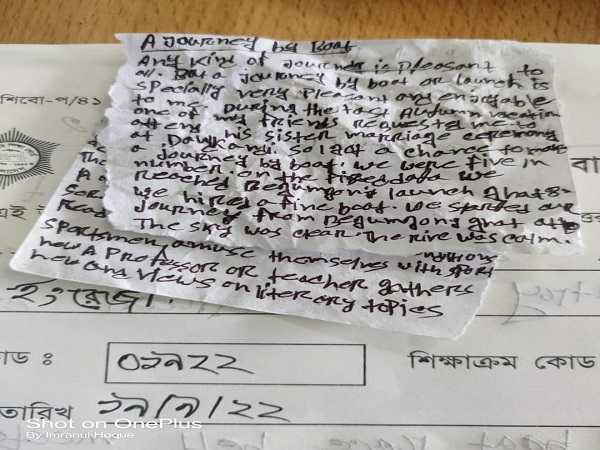 A Journey by Boat
Any kind of Journey is Pleasant to
all. But a journey by boat or launch is
specially very Pleasant any enjoyable
to me. During the last Autumn vacation
one of my friends requested me to
attend his sister marriage ceremony
at Daulkandi. So I got a chance to make
a journey by boat. We were five in
number. on the fixed data we
reached Begumgonj launch ghat &
we hired a fine boat. We started our
journey from Begumgong ghat at
The sky was clear. The rive was calm.
শিবো-প/৪১
বা
এই
sportsmen amuse themselves with sport
new A Professor or teacher gathers
new any views on literary topics
ইংরেজি
কোড :
০১৭২২
শিক্ষাক্রম কোড
তারিখ ১৭/৭/২২
Shot on OnePlus
By Imranul Hoque